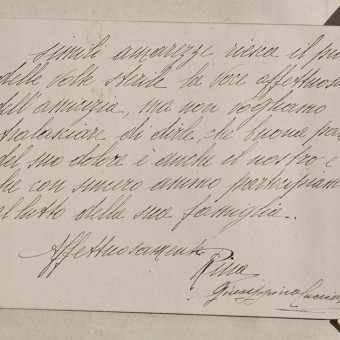 simili amarezze riesca il più
delle volte steril la voce affettuosa
dell'amicizia, ma non vogliamo
tralasciare di dirle, che buona par
del suo dolore è anche il nostro e
che con sincero animo partecipiam
al lutto della sua famiglia.
Affettuosamente
Rina
Giuseppina